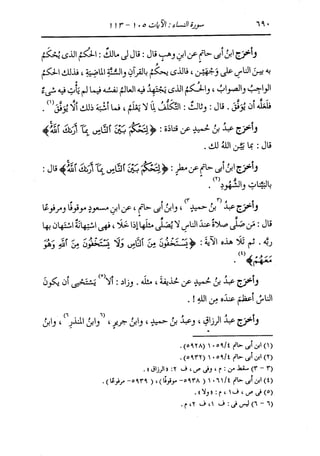 ٦٩٠ سورة النساء : الآيات ١٠٥ - ١١٣
وأخرج ابنُ أبى حاتمٍ عن ابنِ وهبٍ قال : قال لى مالكٌ : الحكمُ الذى يُحكمُ
به بينَ الناسِ على وَجْهَين ، فالذى يحكُمُ بالقرآنِ والسُّنةِ الماضيةِ ، فذلك الحكمُ
الواجبُ والصوابُ ، والحكمُ الذى يَجْتَهِدُ فيه العالمُ نفسَه فيما لم يَأْتِ فيه شىءٌ
فلعلَّه أن يُوَفَّقَ . قال : وثالثٌ : التَّكَلُّفُ لِما لا يَعْلَمُ ، فما أشبهَ ذلك ألا يُوَفَّقَ .
وأخرَج عبدُ بنُ حُميدٍ عن قتادةَ : ﴿لِتَحْكُمَ بَيْنَ النَّاسِ بِمَا أَرَىٰكَ اللَّهُ﴾
قال : بما بَيَّن اللهُ لك .
وأخرَج ابنُ أبى حاتمٍ عن مطرٍ : ﴿لِتَحْكُمَ بَيْنَ النَّاسِ بِمَا أَرَىٰكَ اللَّهُ﴾ قال :
بالبيِّناتِ والشُّهودِ (٢) .
وأخرَج عبدُ (٣) بنُ حميدٍ (٣) ، وابنُ أبى حاتمٍ ، عن ابنِ مسعودٍ موقوفًا ومرفوعًا
قال : مَن صلَّى صلاةً عندَ الناسِ لا يُصلِّى مثلَها إذا خَلا ، فهى استهانةٌ استهان بها
ربَّه . ثم تَلا هذه الآيةَ : ﴿يَسْتَخْفُونَ مِنَ النَّاسِ وَلَا يَسْتَخْفُونَ مِنَ اللَّهِ وَهُوَ
مَعَهُمْ﴾ (٤) .
وأخرَج عبدُ بنُ حُميدٍ عن حُذيفةَ ، مثلَه . وزاد : ألا (٥) يَسْتَحْيِى أن يكونَ
الناسُ أعظمَ عندَه مِن اللهِ !
وأخرَج عبدُ الرزاقِ ، وعبدُ بنُ حميدٍ ، وابنُ جريرٍ ، (٦) وابنُ المنذرِ (٦) ، وابنُ
(١) ابن أبى حاتم ١٠٥٩/٤ (٥٩٢٨) .
(٢) ابن أبى حاتم ١٠٥٩/٤ (٥٩٣٢) .
(٣ - ٣) سقط من : م ، وفى ص ، ف ٢ : « الرزاق » .
(٤) ابن أبى حاتم ١٠٦١/٤ (٥٩٣٨ - موقوفًا) ، (٥٩٣٩ - مرفوعًا) .
(٥) فى ص ، ف ١ ، م : « ولا » .
(٦ - ٦) ليس فى : ف ١ ، ف ٢ ، م .